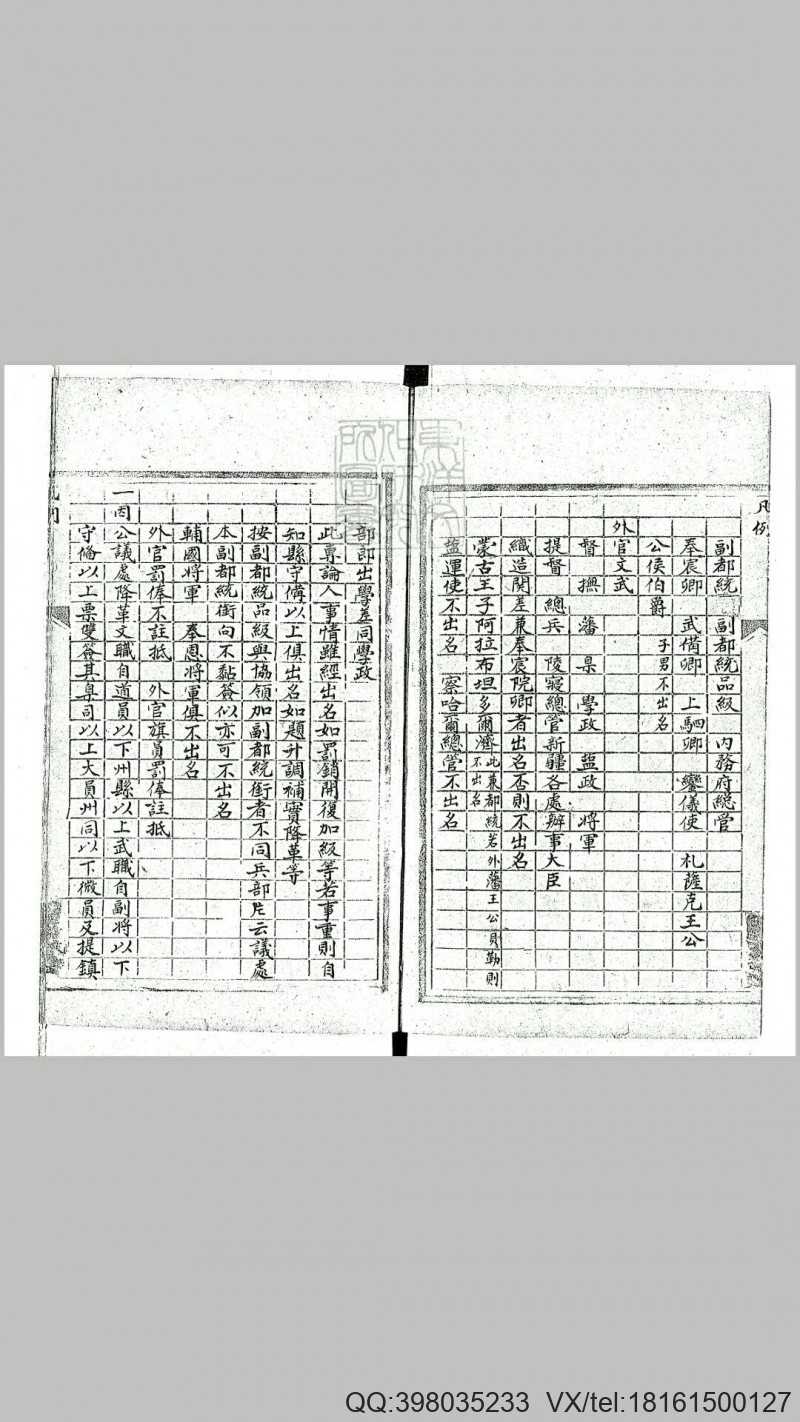 凡例
副都統 副都統品級 內務府總管
奉宸卿 武備卿 上駟卿 鑾儀使 札薩克王公
公侯伯爵 子男不出名
外官文武
督撫 藩臬 學政 鹽政 將軍
提督 總兵 陵寢總管新疆各處辦事大臣
織造關差兼奉宸院卿者出名否則不出名
蒙古王子阿拉布坦多爾濟此兼都統若外藩王公貝勒則不出名
盐運使不出名 察哈爾總管不出名
部郎出學差同學政
此專論人事情雖經出名如罰銷開復加級等若事重則自
知縣守備以上俱出名如題升調補實降革等
按副都統品級與協領加副都統銜者不同兵部片云議處
本副都統銜向不黏簽似亦可不出名
輔國將軍 奉恩將軍俱不出名
外官罰俸不註抵 外官旗員罰俸註抵
一因公議處降革文職自道員以下州縣以上武職自副將以下
守俻以上票雙簽其臬司以上大員州同以下微員及提鎮
QQ:398035233 VX/tel:18161500127